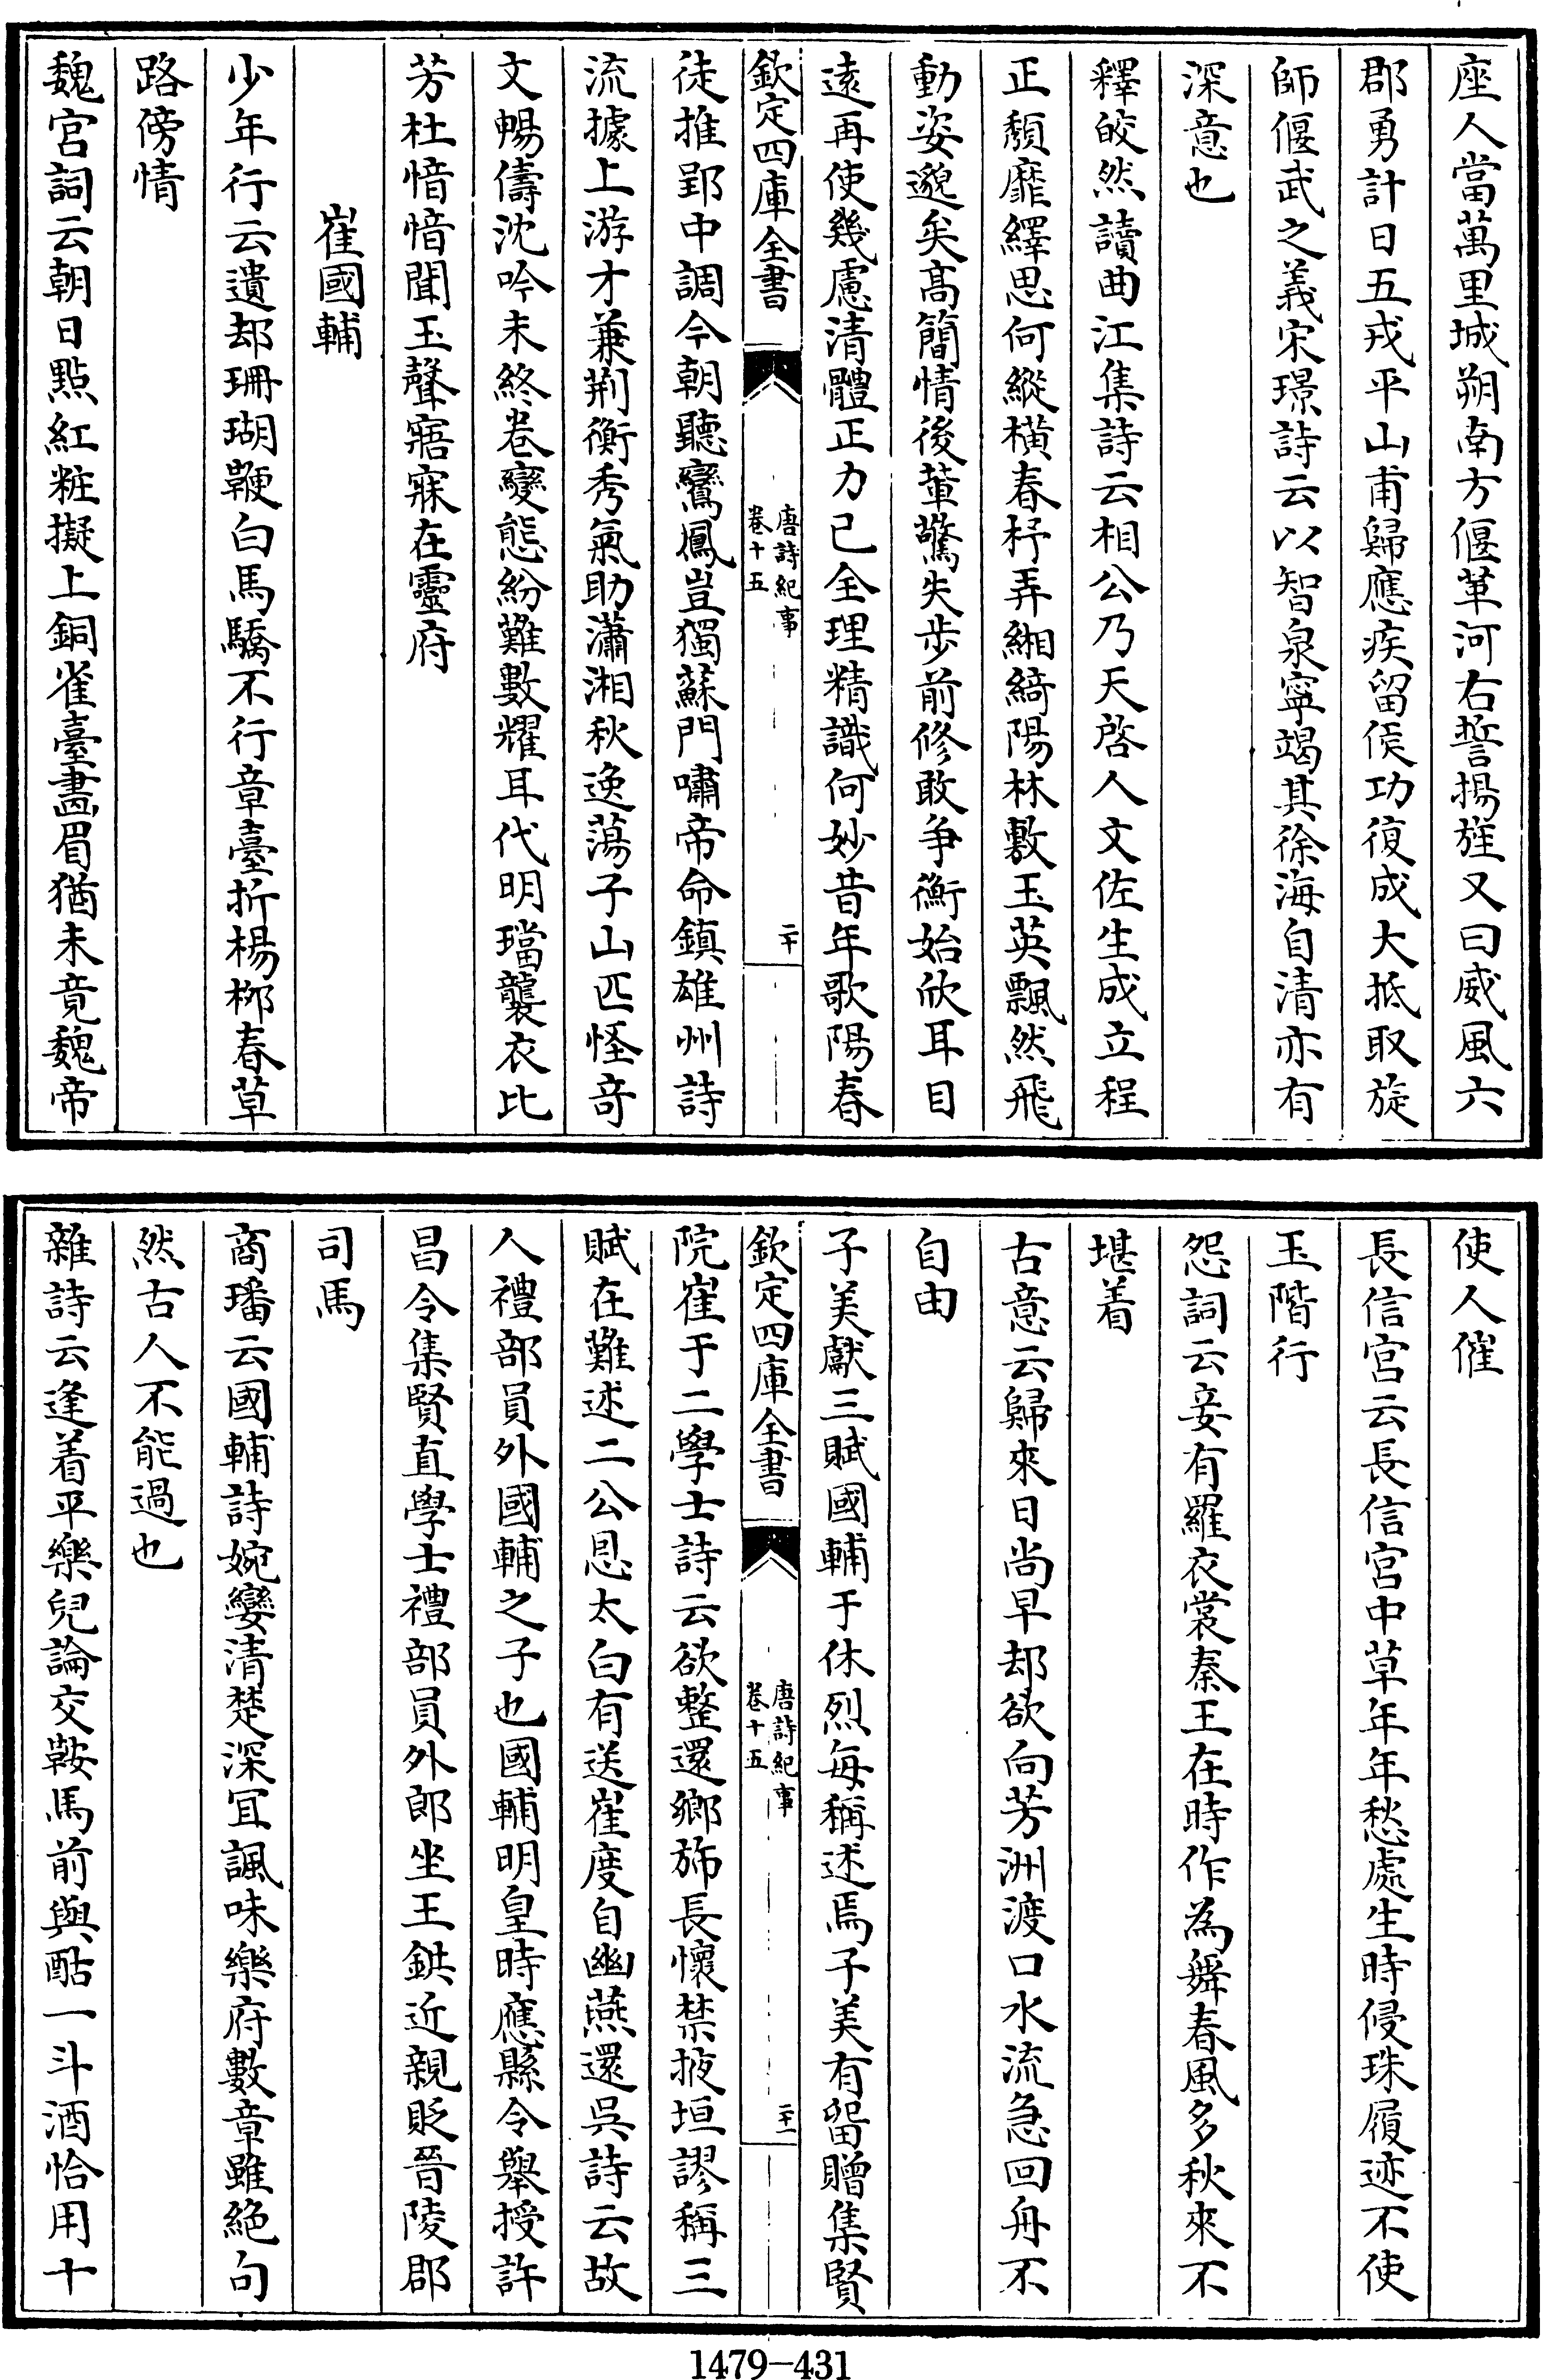 座人當萬里城朔南方偃革河右誓揚旌又曰威風六
郡勇計日五戎平山甫歸應疾留侯功復成大抵取旋
師偃武之義宋璟詩云以智泉寧竭其徐海自清亦有
深意也
釋皎然讀曲江集詩云相公乃天啓人文佐生成立程
正頽靡繹思何縱横春杼弄緗綺陽林敷玉英飄然飛
動姿邈矣髙簡情後輩驚失步前修敢爭衡始欣耳目
遠再使幾慮清體正力已全理精識何妙昔年歌陽春
欽定四庫全書
唐詩紀事
卷十五
二十
徒推郢中調今朝聽鸞鳳豈獨蘇門嘯帝命鎮雄州詩
流據上游才兼荆衡秀氣助瀟湘秋逸蕩子山匹怪奇
文暢儔沈吟未終卷變態紛難數耀耳代明璫襲衣比
芳杜愔愔聞玉聲寤寐在靈府
崔國輔
少年行云遺却珊瑚鞭白馬驕不行章臺折楊栁春草
路傍情
魏宮詞云朝日點紅粧擬上銅雀臺畵眉猶未竟魏帝
使人催
長信宮云長信宮中草年年愁處生時侵珠履迹不使
玉階行
怨詞云妾有羅衣裳秦王在時作為舞春風多秋來不
堪着
古意云歸來日尚早却欲向芳洲渡口水流急回舟不
自由
子美獻三賦國輔于休烈每稱述焉子美有留贈集賢
欽定四庫全書
唐詩紀事
卷十五
二十一
院崔于二學士詩云欲整還鄉斾長懷禁掖垣謬稱三
賦在難述二公恩太白有送崔度自幽燕還吳詩云故
人禮部員外國輔之子也國輔明皇時應縣令舉授許
昌令集賢直學士禮部員外郎坐王鉷近親貶晉陵郡
司馬
商璠云國輔詩婉孌清楚深冝諷味樂府數章雖絶句
然古人不能過也
雜詩云逢着平樂兒論交鞍馬前與酤一斗酒恰用十
1479-431